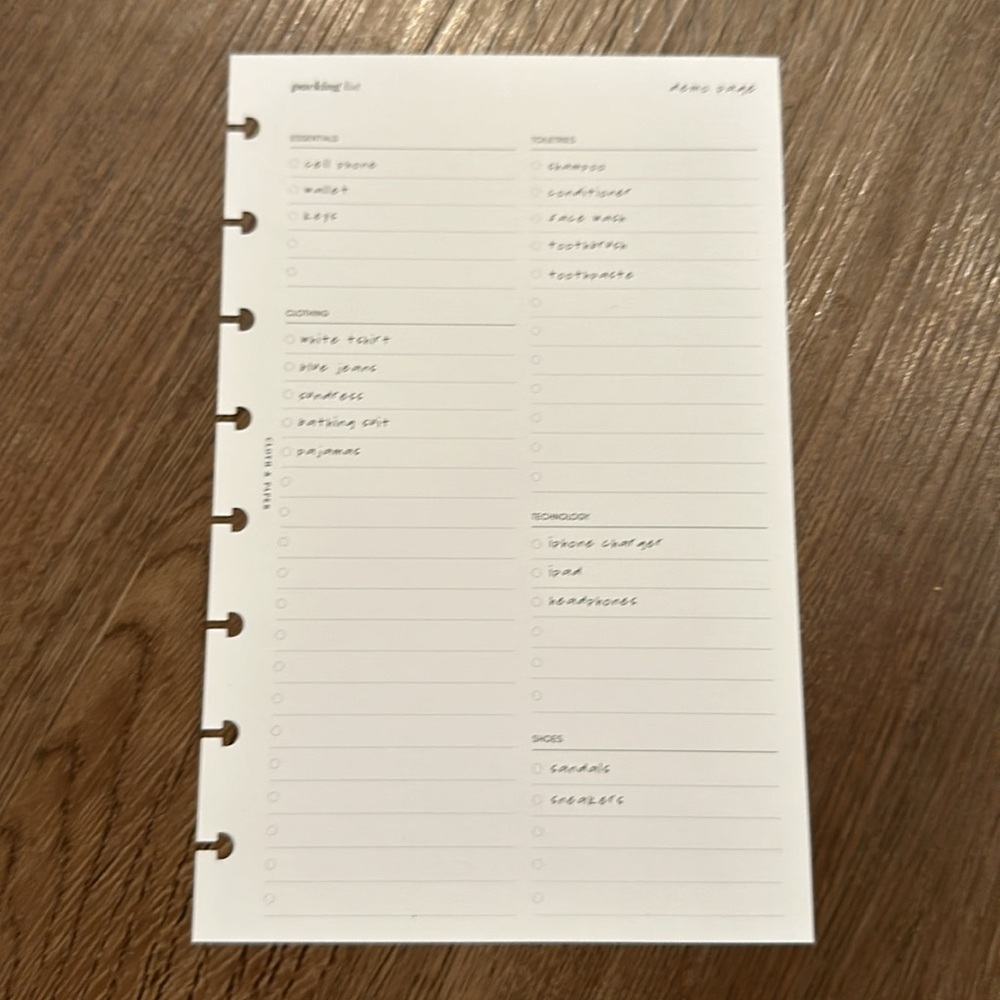 packing list
demo page
ESSENTIALS
cell phone
wallet
keys
CLOTHING
white tshirt
blue jeans
sundress
bathing suit
pajamas
CLOTH & PAPER
TOILETRIES
shampoo
conditioner
face wash
toothbrush
toothpaste
TECHNOLOGY
iphone charger
ipad
headphones
SHOES
sandals
sneakers